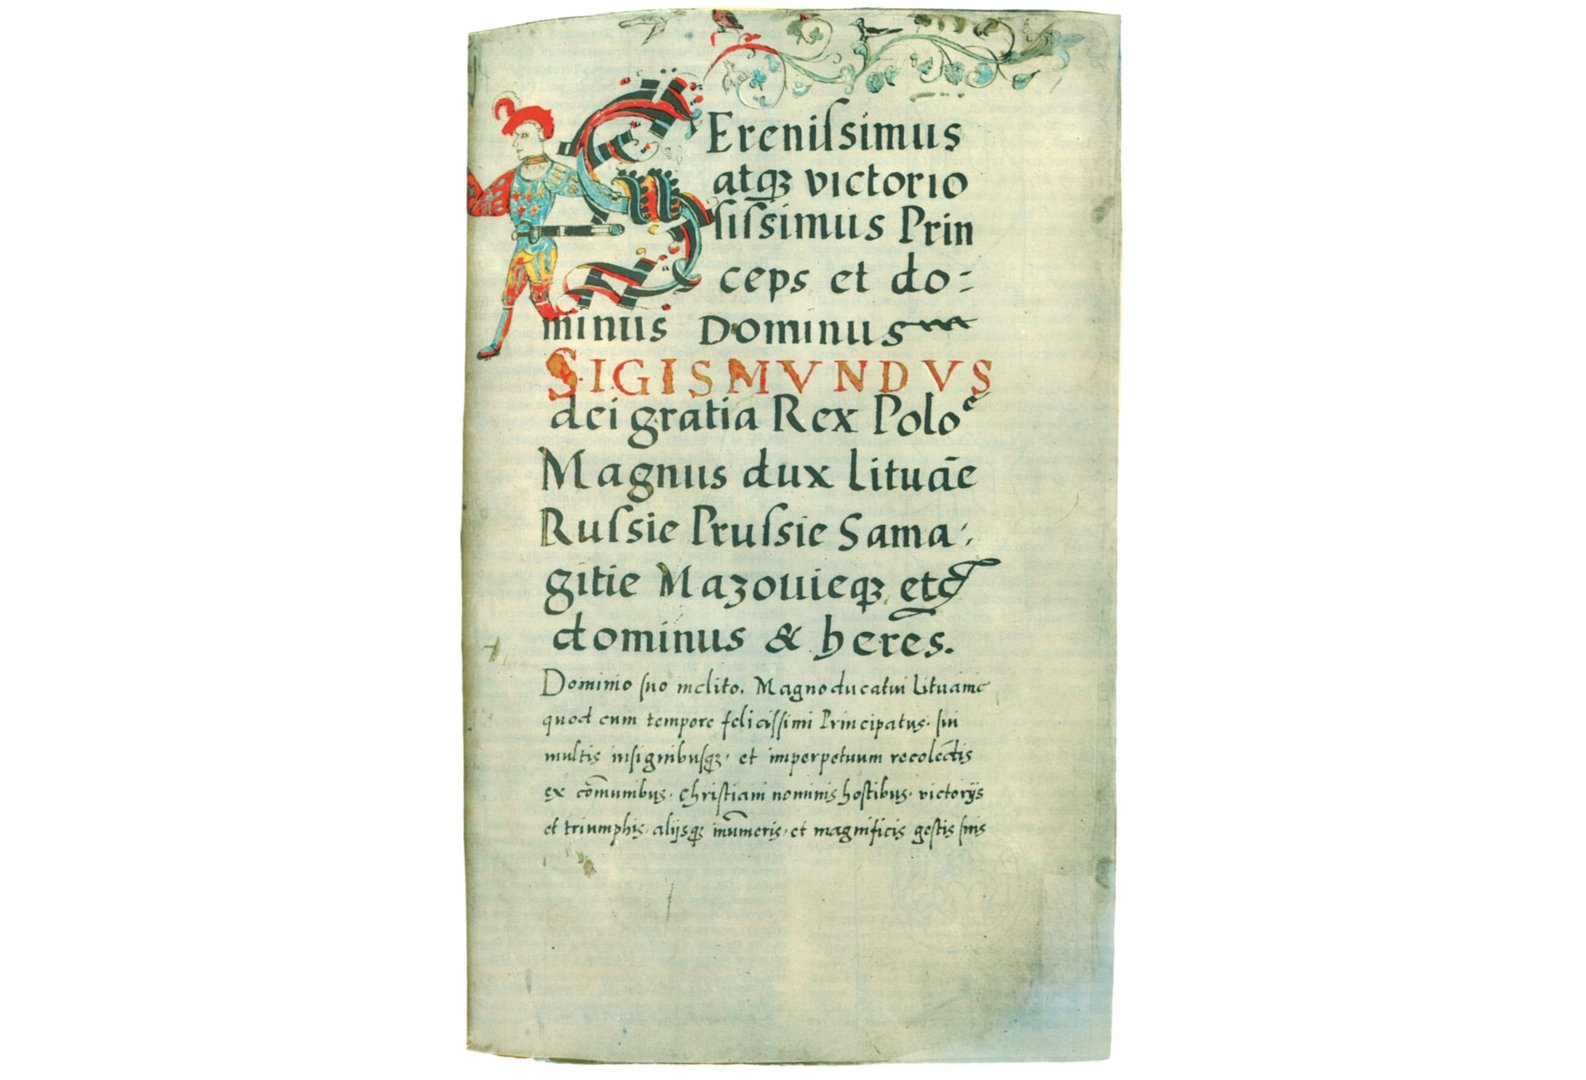 SEreniſsimus
atqꝫ victorio
ſiſsimus Prin
ceps et do:
minus Dominus
SIGISMVNDVS
dei gratia Rex Poloᵉ
Magnus dux Lituāe
Ruſsie Pruſsie Sama:
gitie Mazouieqꝫ etc
dominus & heres.
Dominio ſuo inclito. Magno ducatui Lituanie
quod eum tempore feliciſſimi Principatus. ſui
multis inſignibuſqꝫ. et imperpetuum recolēdis
ex cōmunibus. chriſtiani nominis hoſtibus. victorijs
et triumphis. alijsqꝫ inūmeris. et magnificis geſtis ſuis